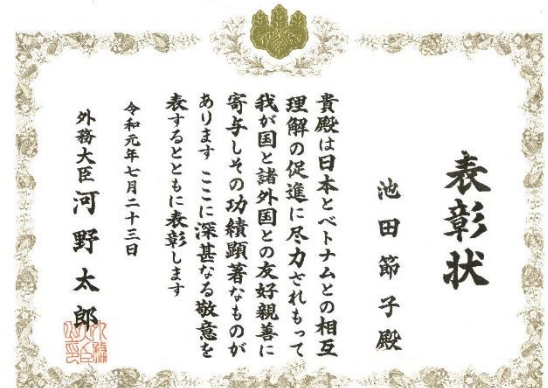 表彰状
池田節子殿
貴殿は日本とベトナムとの相互
理解の促進に尽力されもって
我が国と諸外国との友好親善に
寄与しその功績顕著なものが
あります ここに深甚なる敬意を
表するとともに表彰します
令和元年七月二十三日
外務大臣 河野太郎